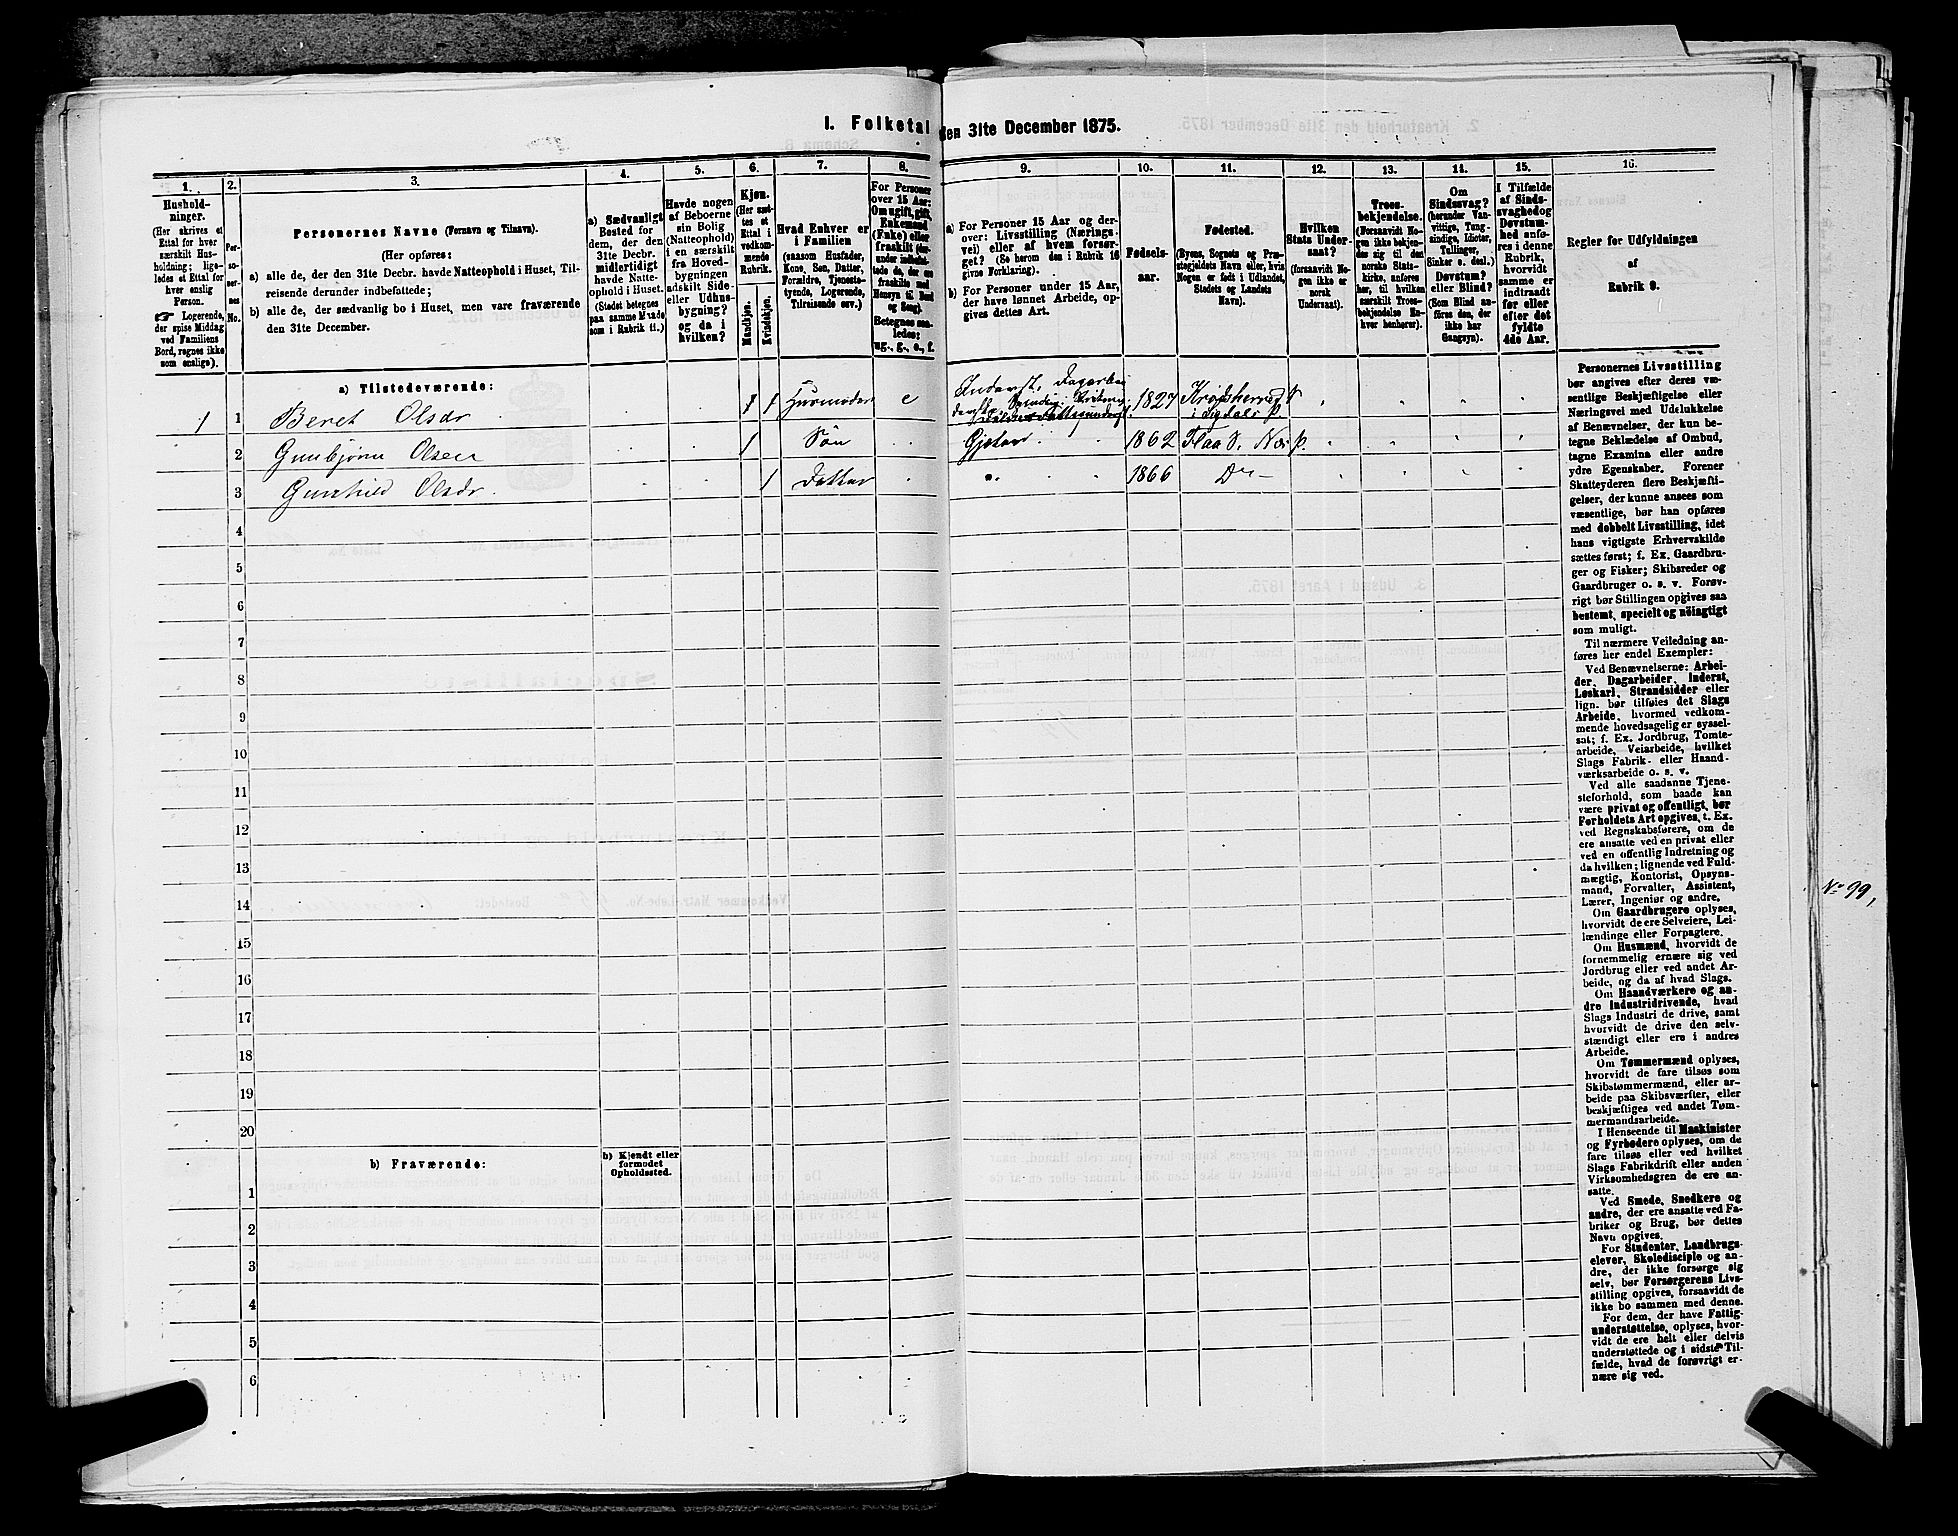 I. Folketal den 31te December 1875.
1.
Hushold-
ninger.
(Her skrives et
Ettal for hver
særskilt Hus-
holdning; lige-
ledes et Ettal for
hver enslig
Person.
☞ Logerende,
der spise Middag
ved Familiens
Bord, regnes ikke
som enslige).
2.
Per-
so-
ner-
nes
No.
3.
Personernes Navne (Fornavn og Tilnavn).
(Her opføres:
a) alle de, der den 31te Decbr. havde Natteophold i Huset, Til-
reisende derunder indbefattede;
b) alle de, der sædvanlig bo i Huset, men vare fraværende
den 31te December.
4.
a) Sædvanligt
Bosted for
dem, der den
31te Decbr.
midlertidigt
havde Natte-
ophold i Huset.
(Stedet betegnes
paa samme Maade
som i Rubrik 11.)
5.
Havde nogen
af Beboerne
sin Bolig
(Natteophold)
i en særskilt
fra Hoved-
bygningen
adskilt Side-
eller Udhus-
bygning?
og da i
hvilken?
6.
Kjøn.
(Her sæt-
tes et
Ettal i
vedkom-
mende
Rubrik.
Mandkjøn.
Kvindekjøn.
7.
Hvad Enhver er
i Familien
(saasom Husfader,
Kone, Søn, Datter,
Forældre, Tjeneste-
tyende, Logerende,
Tilreisende osv.)
8.
For Personer
over 15 Aar:
Om ugift, gift,
Enkemand
(Enke) eller
fraskilt
Betegnes saa-
ledes:
ug., g., e., f.
9.
a) For Personer 15 Aar og der-
over: Livsstilling (Nærings-
vei) eller af hvem forsør-
get? (Se herom den i Rubrik 16
givne Forklaring).
b) For Personer under 15 Aar,
der have lønnet Arbeide, op-
gives dettes Art.
10.
Fødsels-
aar.
11.
Fødested.
(Byens, Sognets og Præ-
stegjeldets Navn eller, hvis
Nogen er født i Udlandet,
Stedets og Landets
Navn).
12.
Hvilken
Stats Under-
saat?
(forsaavidt No-
gen ikke er
norsk
Undersaat).
13.
Troes-
bekjendelse.
(Forsaavidt No-
gen ikke bekjen-
der sig til den
norske Stats-
kirke, anføres
her, til hvilken
særskilt Troes-
bekjendelse En-
hver henhører).
14.
Om
Sindssvag?
(herunder Van-
vittige, Tung-
sindige, Idioter,
Tullinger,
Sinker o. desl.)
Døvstum?
eller Blind?
(Som Blind an-
føres den, der
ikke har
Gangsyn).
15.
I Tilfælde
af Sinds-
svaghed og
Døvstum-
hed anfø-
res i denne
Rubrik,
hvorvidt
samme er
indtraadt
før eller
efter det
fyldte
4de Aar.
16.
Regler for Udfyldningen
af
Rubrik 9.
a) Tilstedeværende:
1 1 Beret Olsdr 1 Husmoder e Inderst, Dagarbei 1827 Krødsherred
i Sigdals P.
2 Gunbjørn Olsen 1 Søn Gjetar 1862 Flaa S. Næs P.
3 Gunhild Olsdr. 1 Datter 1866 Do
4
5
6
7
8
9
10
11
12
13
14
15
16
17
18
19
20
b) Fraværende:
b) Kjendt eller
formodet
Opholdssted.
1
2
3
4
5
6
Personernes Livsstilling
bør angives efter deres væ-
sentlige Beskjæftigelse eller
Næringsvei med Udelukkelse
af Benævnelser, der kun be-
tegne Beklædelse af Ombud,
tagne Examina eller andre
ydre Egenskaber. Forener
Skatteyderen flere Beskjæfti-
gelser, der kunne ansees som
væsentlige, bør han opføres
med dobbelt Livsstilling, idet
hans vigtigste Erhvervskilde
sættes først; f. Ex. Gaardbru-
ger og Fisker; Skibsreder og
Gaardbruger o. s. v. Forøv-
rigt bør Stillingen opgives saa
bestemt, specielt og nöiagtigt
som muligt.
Til nærmere Veiledning an-
føres her endel Exempler:
Ved Benævnelserne: Arbei-
der, Dagarbeider, Inderst,
Løskarl, Strandsidder eller
lign. bør tilføies det Slags
Arbeide, hvormed vedkom-
mende hovedsagelig er syssel-
sat; f. Ex. Jordbrug, Tomte-
arbeide, Veiarbeide, hvilket
Slags Fabrik- eller Haand-
værksarbeide o. s. v.
Ved alle saadanne Tjene-
steforhold, som baade kan
være privat og offentligt, bør
Forholdets Art opgives, t. Ex.
ved Regnskabsførere, om de
ere ansatte ved en privat eller
ved en offentlig Indretning og
da hvilken; lignende ved Fuld-
mægtig, Kontorist, Opsyns-
mand, Forvalter, Assistent,
Lærer, Ingeniør og andre.
Om Gaardbrugere oplyses,
hvorvidt de ere Selveiere, Lei-
lændinge eller Forpagtere.
Om Husmænd, hvorvidt de
fornemmelig ernære sig ved
Jordbrug eller ved andet Ar-
beide, og da af hvad Slags.
Om Haandværkere og an-
dre Industridrivende, hvad
Slags Industri de drive, samt
hvorvidt de drive den selv-
stændigt eller ere i andres
Arbeide.
Om Tømmermænd oplyses,
hvorvidt de fare tilsøs som
Skibstømmermænd, eller ar-
beide paa Skibsværfter, eller
beskjæftiges ved andet Tøm-
mermandsarbeide.
I Henseende til Maskinister
og Fyrbødere oplyses, om de
fare tilsøs eller ved hvilket
Slags Fabrikdrift eller anden
Virksomhedsgren de ere an-
satte.
Ved Smede, Snedkere og
andre, der ere ansatte ved Fa-
briker og Brug, bør dettes
Navn opgives.
For Studenter, Landbrugs-
elever, Skoledisciple og an-
dre, der ikke forsørge sig
selv, bør Forsørgerens Livs-
stilling opgives, forsaavidt de
ikke bo sammen med denne.
For dem, der have Fattig-
understøttelse, oplyses, hvor-
vidt de ere helt eller delvis
understøttede og i sidste Til-
fælde, hvad de forøvrigt er-
nære sig ved.
No 99,